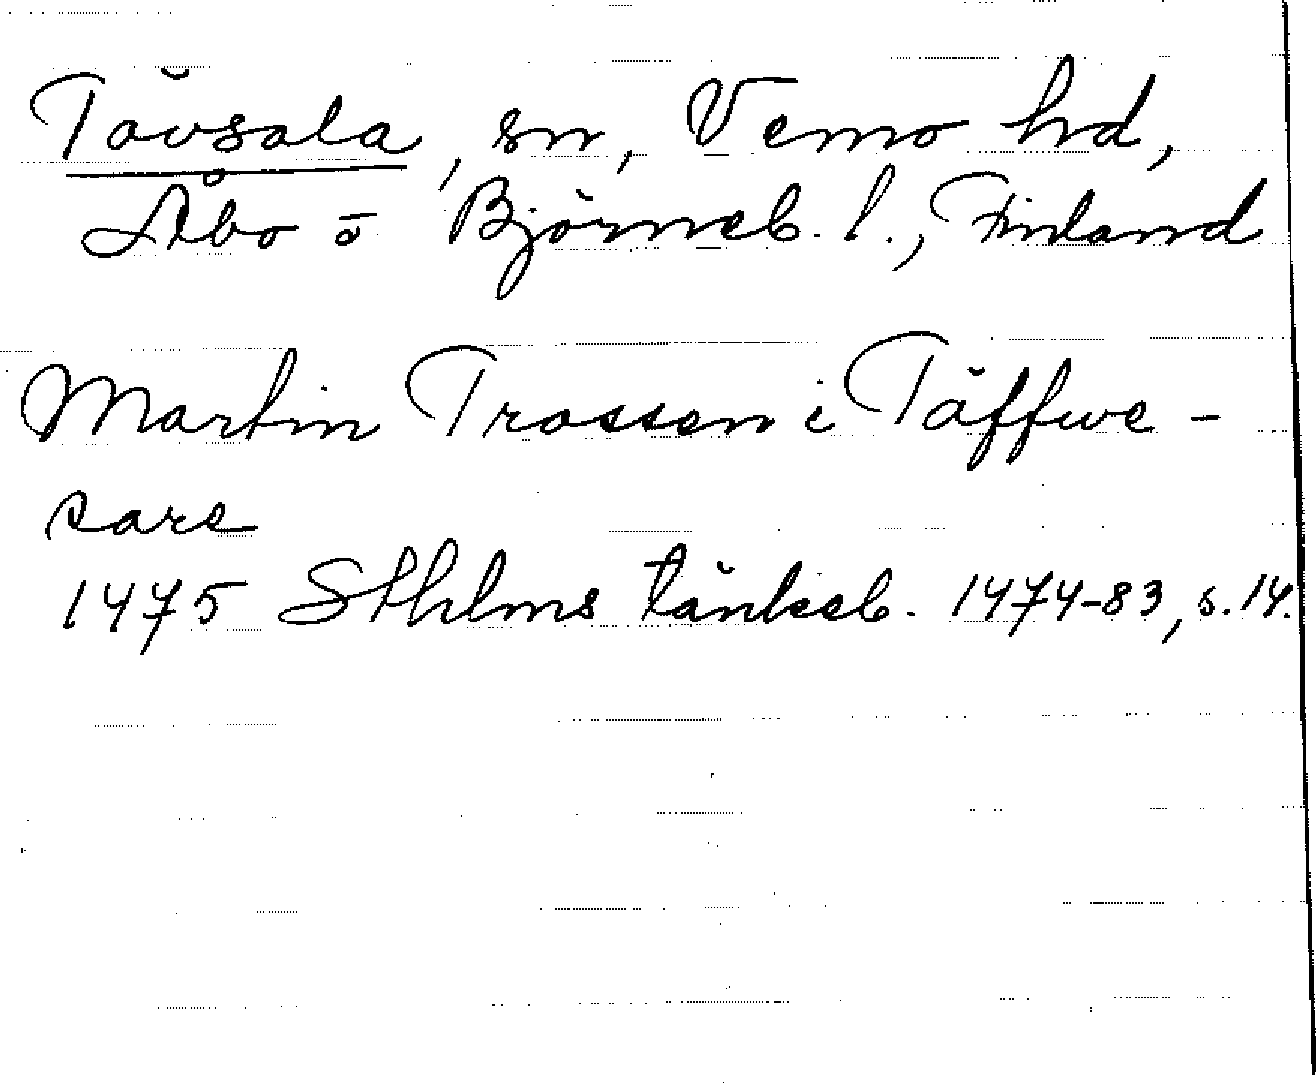 Tövsala, sn, Vemo hd,
Åbo o Björneb. l., Finland
Martin Trassen i Täffwe-
sare
1475 Sthlms tänkeb. 1474-83, s. 14.